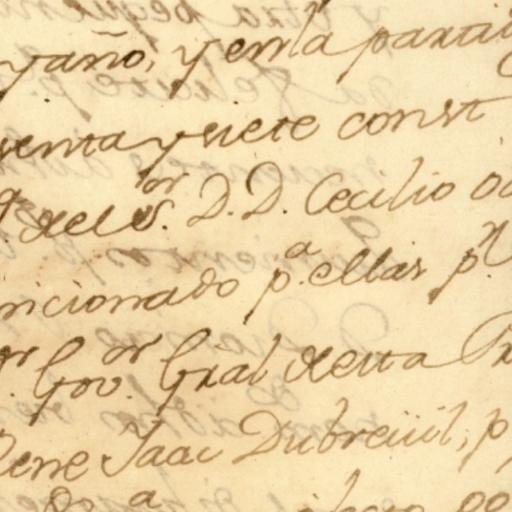 y año, y en la parti
senta y siete const
del S.or D. D. Cecilio O
ncionado p.a ellas p.r
or Gov.or Gral de esta
Rene Isaac Dubreüil, p